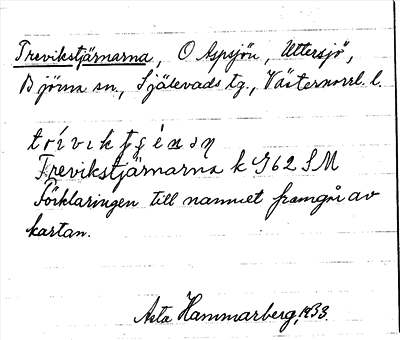 Trevikstjärnarna, O Aspsjön, Uttersjö,
Björna sn., Själevads tg., Västernorrl. l.
Trevikstjärnarna k 762 SM
Förklaringen till namnet framgår av
kartan.
Asta Hammarberg, 1933.